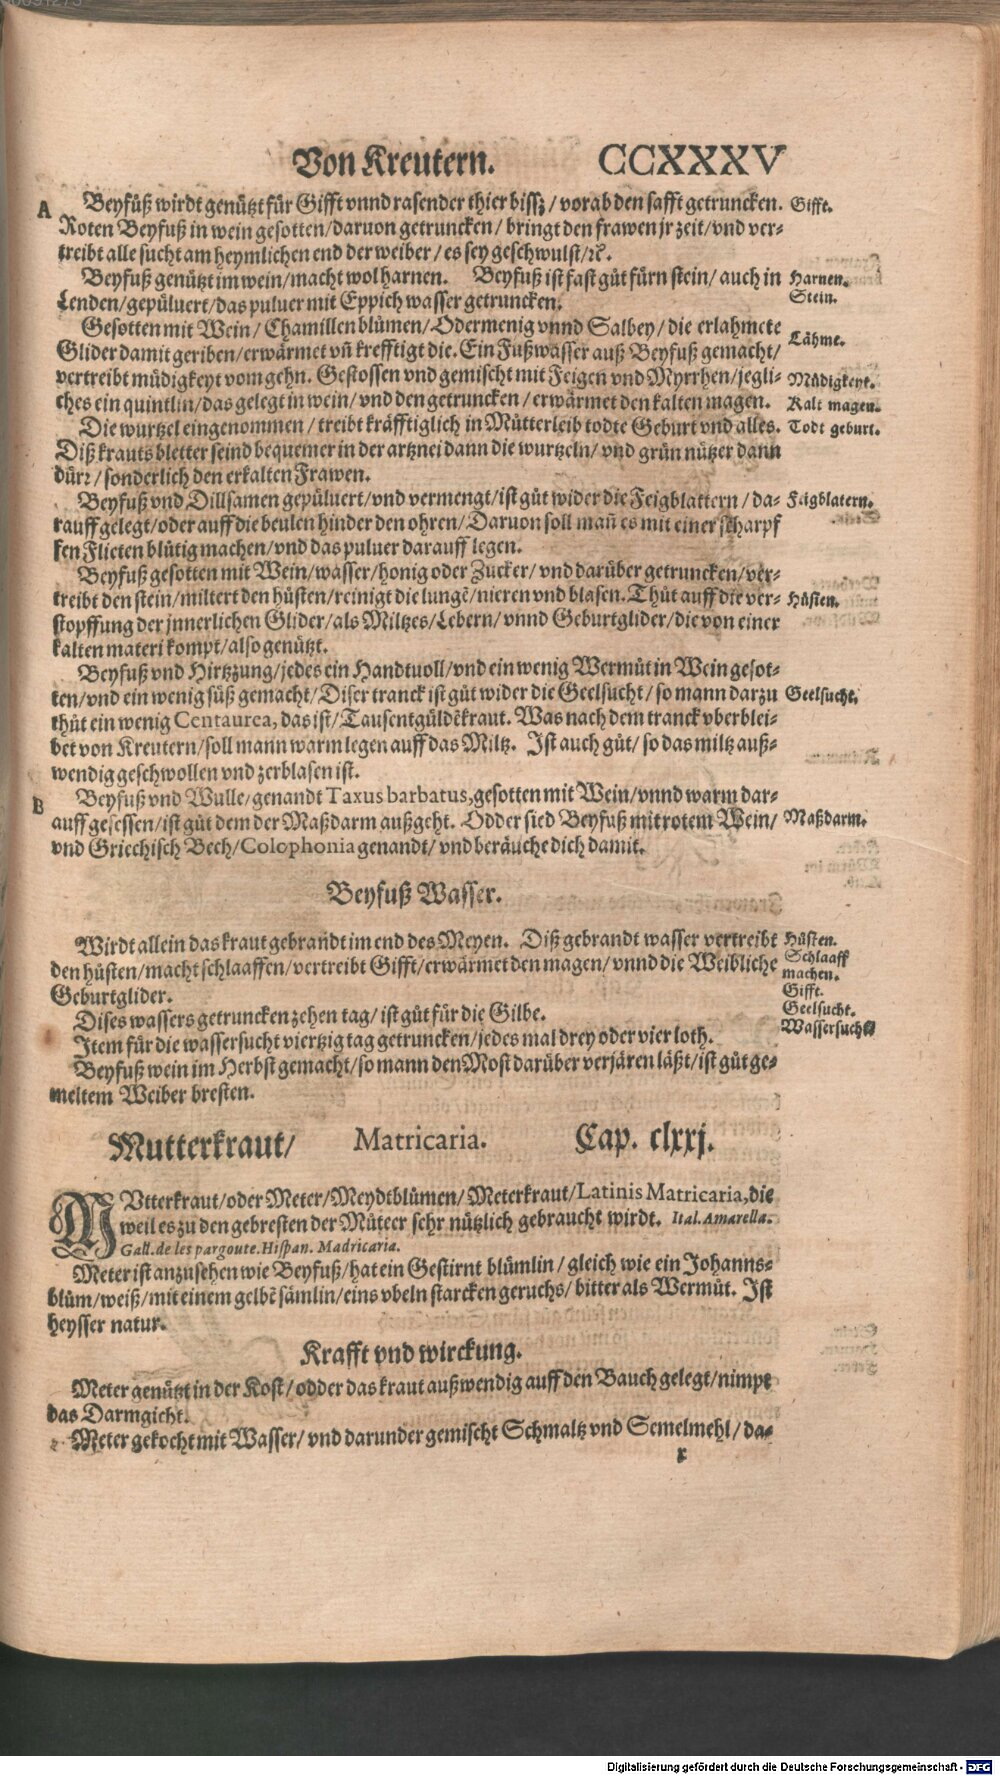 Von Kreutern. CCXXXV
A Beyfůß wirdt genützt für Gifft vnnd rasender thier bissz / vorab den safft getruncken. Gifft.
Roten Beyfuß in wein gesotten / daruon getruncken / bringt den frawen jr zeit / vnd ver⸗
treibt alle sucht am heymlichen end der weiber / es sey geschwulst / ꝛc.
Beyfuß genützt im wein / macht wol harnen. Beyfuß ist fast gůt fürn stein / auch in Harnen.
Lenden / gepüluert / das puluer mit Eppich wasser getruncken. Stein.
Gesotten mit Wein / Chamillen blůmen / Odermenig vnnd Salbey / die erlahmete
Glider damit geriben / erwärmet vñ krefftigt die. Ein Fußwasser auß Beyfuß gemacht / Lähme.
vertreibt müdigkeyt vom gehn. Gestossen vnd gemischt mit Feigen vnd Myrrhen / jegli⸗ Müdigkeyt.
ches ein quintlin / das gelegt in wein / vnd den getruncken / erwärmet den kalten magen. Kalt magen.
Die wurtzel eingenommen / treibt kräfftiglich in Můtterleib todte Geburt vnd alles. Todt geburt.
Diß krauts bletter seind bequemer in der artznei dann die wurtzeln / vnd grün nützer dann
dürꝛ / sonderlich den erkalten Frawen.
Beyfuß vnd Dillsamen gepüluert / vnd vermengt / ist gůt wider die Feigblattern / da⸗ Feigblatern.
rauff gelegt / oder auff die beulen hinder den ohren / Daruon soll mañ es mit einer scharpf
fen Flieten blůtig machen / vnd das puluer darauff legen.
Beyfuß gesotten mit Wein / wasser / honig oder Zucker / vnd darüber getruncken / ver⸗
treibt den stein / miltert den hůsten / reinigt die lungẽ / nieren vnd blasen. Thůt auff die ver⸗ Hůsten.
stopffung der jnnerlichen Glider / als Miltzes / Lebern / vnnd Geburtglider / die von einer
kalten materi kompt / also genützt.
Beyfuß vnd Hirtzzung / jedes ein Handtuoll / vnd ein wenig Wermůt in Wein gesot⸗
ten / vnd ein wenig süß gemacht / Diser tranck ist gůt wider die Geelsucht / so mann darzu Geelsucht.
thůt ein wenig Centaurea, das ist / Tausentgüldẽkraut. Was nach dem tranck vberblei⸗
bet von Kreutern / soll mann warm legen auff das Miltz. Ist auch gůt / so das miltz auß⸗
wendig geschwollen vnd zerblasen ist.
B Beyfuß vnd Wulle / genandt Taxus barbatus, gesotten mit Wein / vnnd warm dar⸗
auff gesessen / ist gůt dem der Maßdarm außgeht. Odder sied Beyfuß mit rotem Wein / Maßdarm.
vnd Griechisch Bech / Colophonia genandt / vnd beräuche dich damit.
Beyfuß Wasser.
Wirdt allein das kraut gebrañdt im end des Meyen. Diß gebrandt wasser vertreibt Hůsten.
den hůsten / macht schlaaffen / vertreibt Gifft / erwärmet den magen / vnnd die Weibliche Schlaaff machen.
Geburtglider. Gifft.
Dises wassers getruncken zehen tag / ist gůt für die Gilbe. Geelsucht.
Item für die wassersucht viertzig tag getruncken / jedes mal drey oder vier loth. Wassersucht
Beyfuß wein im Herbst gemacht / so mann den Most darüber verjären läßt / ist gůt ge⸗
meltem Weiber bresten.
Mutterkraut / Matricaria. Cap. clxxj.
MVtterkraut / oder Meter / Meydtblůmen / Meterkraut / Latinis Matricaria, die
weil es zu den gebresten der Můteer sehr nützlich gebraucht wirdt. Ital. Amarella.
Gall. de les pargoute. Hispan. Madricaria.
Meter ist anzusehen wie Beyfuß / hat ein Gestirnt blümlin / gleich wie ein Johanns⸗
blům / weiß / mit einem gelbẽ sämlin / eins vbeln starcken geruchs / bitter als Wermůt. Ist
heysser natur.
Krafft vnd wirckung.
Meter genützt in der Kost / odder das kraut außwendig auff den Bauch gelegt / nimpt
das Darmgicht.
Meter gekocht mit Wasser / vnd darunder gemischt Schmaltz vnd Semelmehl / da⸗
x
Digitalisierung gefördert durch die Deutsche Forschungsgemeinschaft - DFG